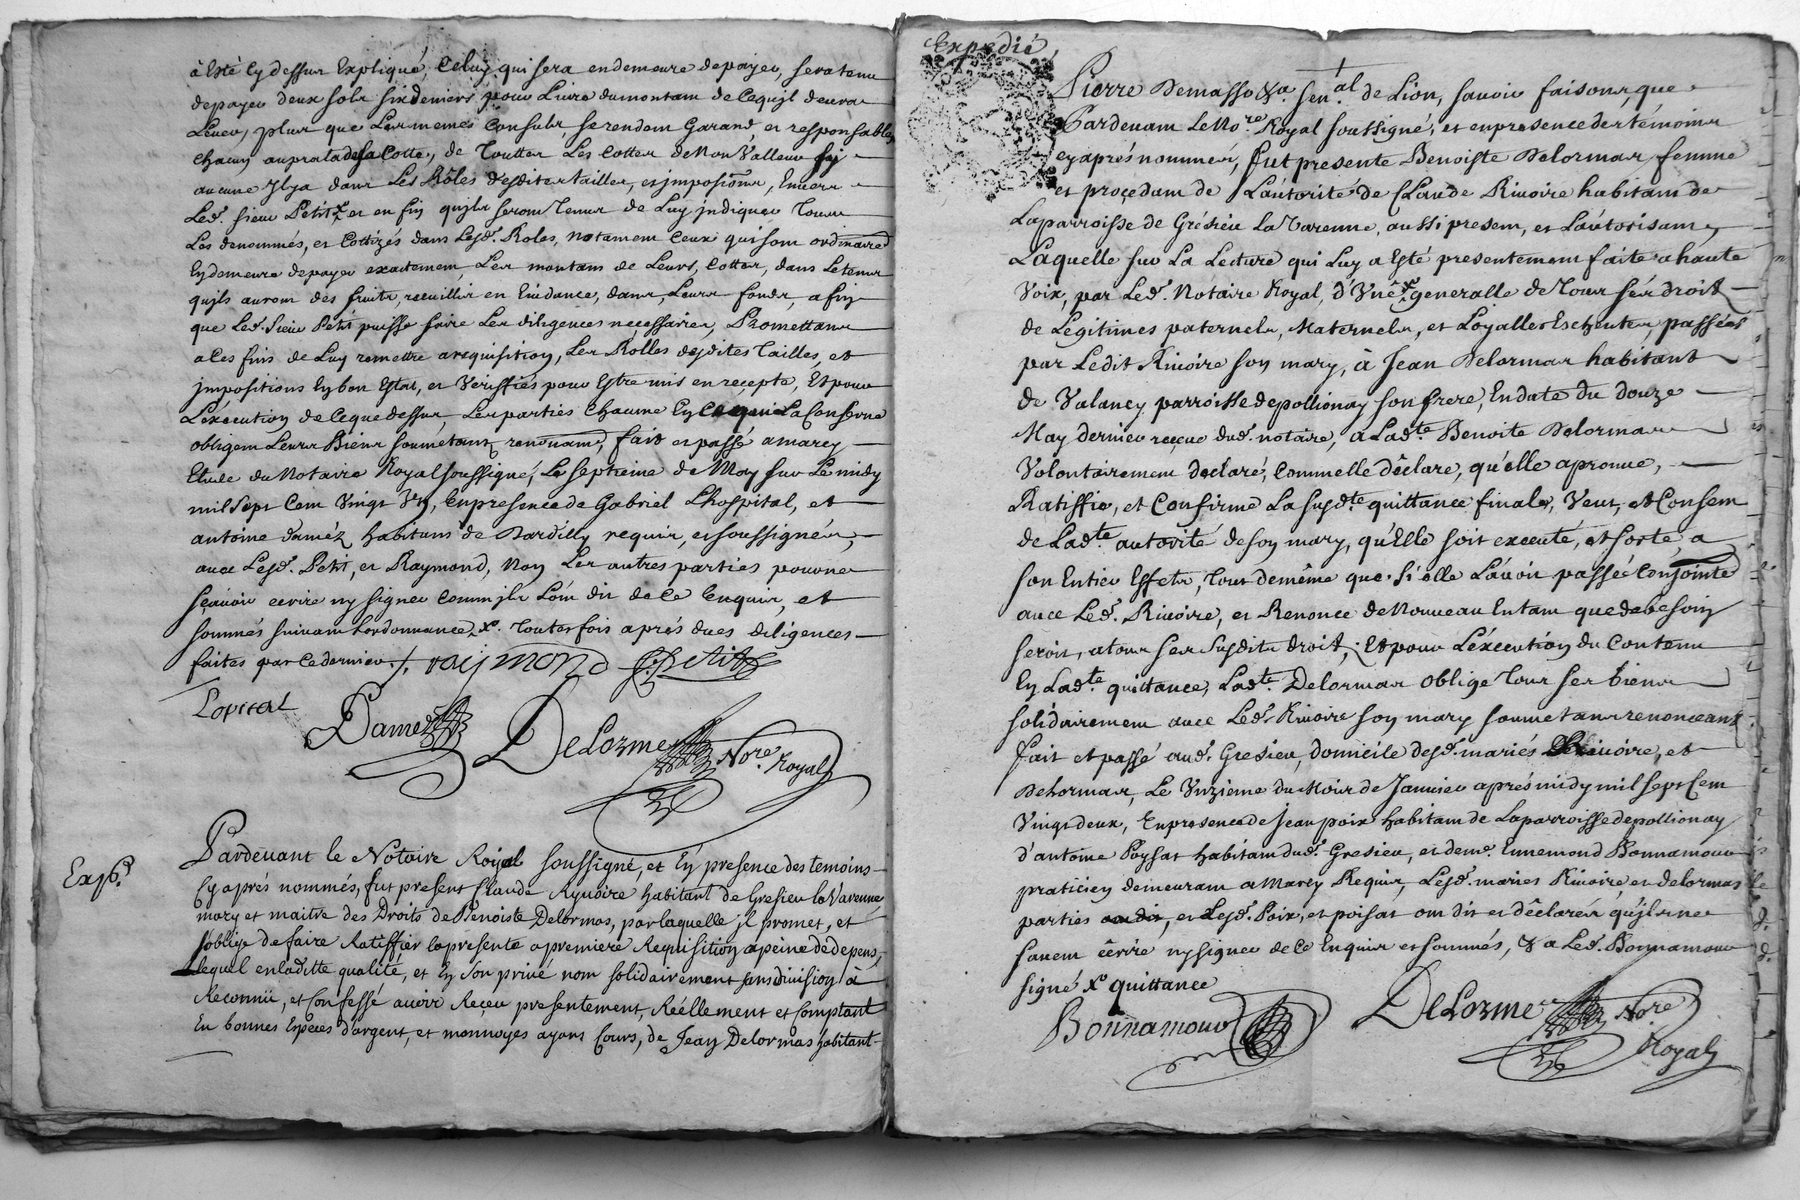 à Esté Cy dessus Expliqué, Celuy qui sera en demeure de payer, sera tenu
de payer deux sols six deniers pour Livre du montant de Cequ'jl deura
Leuer, plus que Les mesmes Consuls, se rendent Garand, et responsables
chacun au prata de sa Cotte, de Touttes Les Cottes de Non Valleur sy
aucune Jl y a dans Les Rôles desdites tailles, et jmpositions, Enuers
Led. sieur Petit x et en fin qu'jls seront Tenus de Luy jndiquer Tous
Les denommés, et Cottizés dans Lesd. Roles, notament Ceux qui sont ordinaires
En demeure de payer exactement Les montans de Leurs Cottes, dans Le temps
qu'jls auront des fruits, receuillis en Euidance, dans Leurs fonds, afin
que Led. Sieur Petit puisse faire Les diligences necessaires, Promettans
a Ces fins de Luy remettre a requisition, Les Rolles desdites Tailles, et
jmpositions En bon Estat, et Veriffiés pour Estre mis en recepte, Et pour
L'execution de Ceque dessus Les parties Chacune En Ce qui La Conserne
obligent Leurs Biens soumétant, renonçant, fait et passé a marcy
Etude du Notaire Royal soussigné, Le septieme de May sur Le midy
mil sept Cent Vingt Vn, En presence de Gabriel Lhospital, et
antoine daméz habitans de Dardilly requis, et soussignés,
auec Lesd. Petit, et Raymond, Non Les autres parties pour ne
sçauoir ecrire ny signer comm'jls L'ont dit de Ce Enquis, et
sommés suivant L'ordonnance, x. Toutes fois aprés dues diligences
faites par Ce dernier. raymond Petit
Lopital
Damez DeLorme Nore. Royal
Expé.
Pardeuant le Notaire Royal soussigné, et En presence des temoins
Cy aprés nommés, fut present Claude Ryuoire habitant de Gresieu la Varenne
mary et maitre des Droits de Benoiste Delormas, par laquelle jl promet, et
s'oblige de faire Ratiffier la presente a premiere Requisition a peine de depens,
lequel en laditte qualité, et En son privé nom solidairement sans diuision à
Reconnü, et Confessé auoir Reçeu presentement, Réellement et Comptant
En bonnes Especes d'argent, et monnoyes ayans Cours, de Jean Delormas habitant
Expedié
Pierre Demasso &a. sen.al de Lion, sauoir faisons, que
Pardeuant Le No.re Royal soussigné, et en presence des témoins
cy aprés nommés, fut presente Benoiste Delormas femme
et proçedant de L'autorité de Claude Riuoire habitant de
La parroisse de Gresieu La Varenne, aussi present, et L'autorisant,
Laquelle sur La Lecture qui Luy a Esté presentement faite a haute
Voix, par Led. Notaire Royal, d'Vne x generalle de Tous ses droit
de Legitimes paternels, Maternels, et Loyalles Escheutes passées
par Ledit Riuoire son mary, à Jean Delormas habitant
de Valancy parroisse de pollionay son frere, En date du douze
May dernier reçeue dud. notaire, a Lad.te Benoite Delormas
Volontairement declaré, comm'elle déclare, qu'elle aprouue,
Ratiffie, et Confirme La susd.te quittance finale, Veut, et Consent
de Lad.te autorité de son mary, qu'Elle soit executé, et sorte, a
son Entier Effets, Tout de même que si elle L'auoit passée Conjointe
auec Led. Riuoire, et Renonce de Nouueau En tant que de besoin
seroit, a tous ses susdits droits, Et pour L'éxecution du Contenu
En Lad.te quittance, Lad.te Delormas oblige Tous ses biens
solidairement auec Led. Riuoire son mary soumetans renonceans
fait et passé aud. Gresieu, domicile desd. mariés Riuoire, et
Delormas, Le Vnzieme du Mois de Januier aprés midy mil sept Cent
Vingt deux, En presence de Jean poix habitant de La parroisse de pollionay
d'antoine Poysat habitant dud. Gresieu, et de me. Ennemond Bonnamour
praticien demeurant a Marcy Requis, Lesd. mariés Riuoire, et delormas
parties ont dit, et Lesd. Poix, et poisat ont dit et déclarés qu'jls ne
sauent écrire ny signer de Ce Enquis et sommés, & a Led. Bonnamour
signé x quittance
Bonnamour DeLorme Nore
Royal